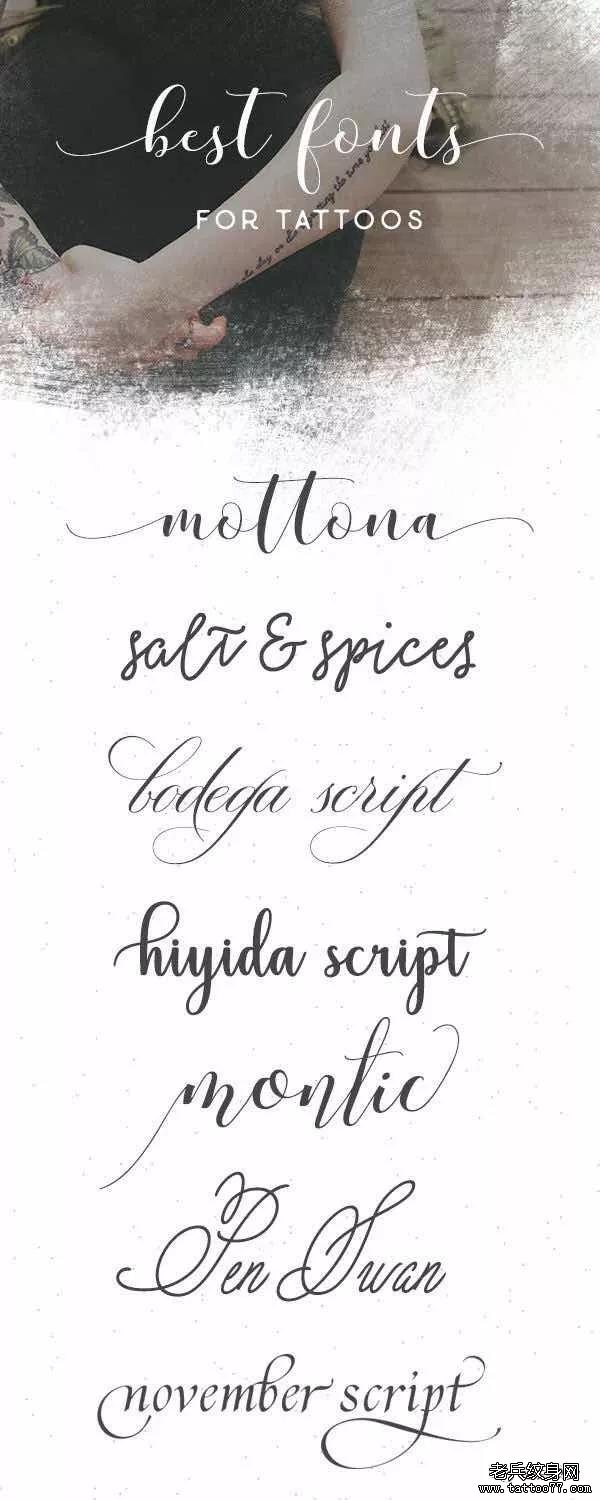 best fonts
FOR TATTOOS
mottona
salt & spices
bodega script
hiyida script
montic
Pen Swan
november script
老兵纹身网
www.tattoo77.com